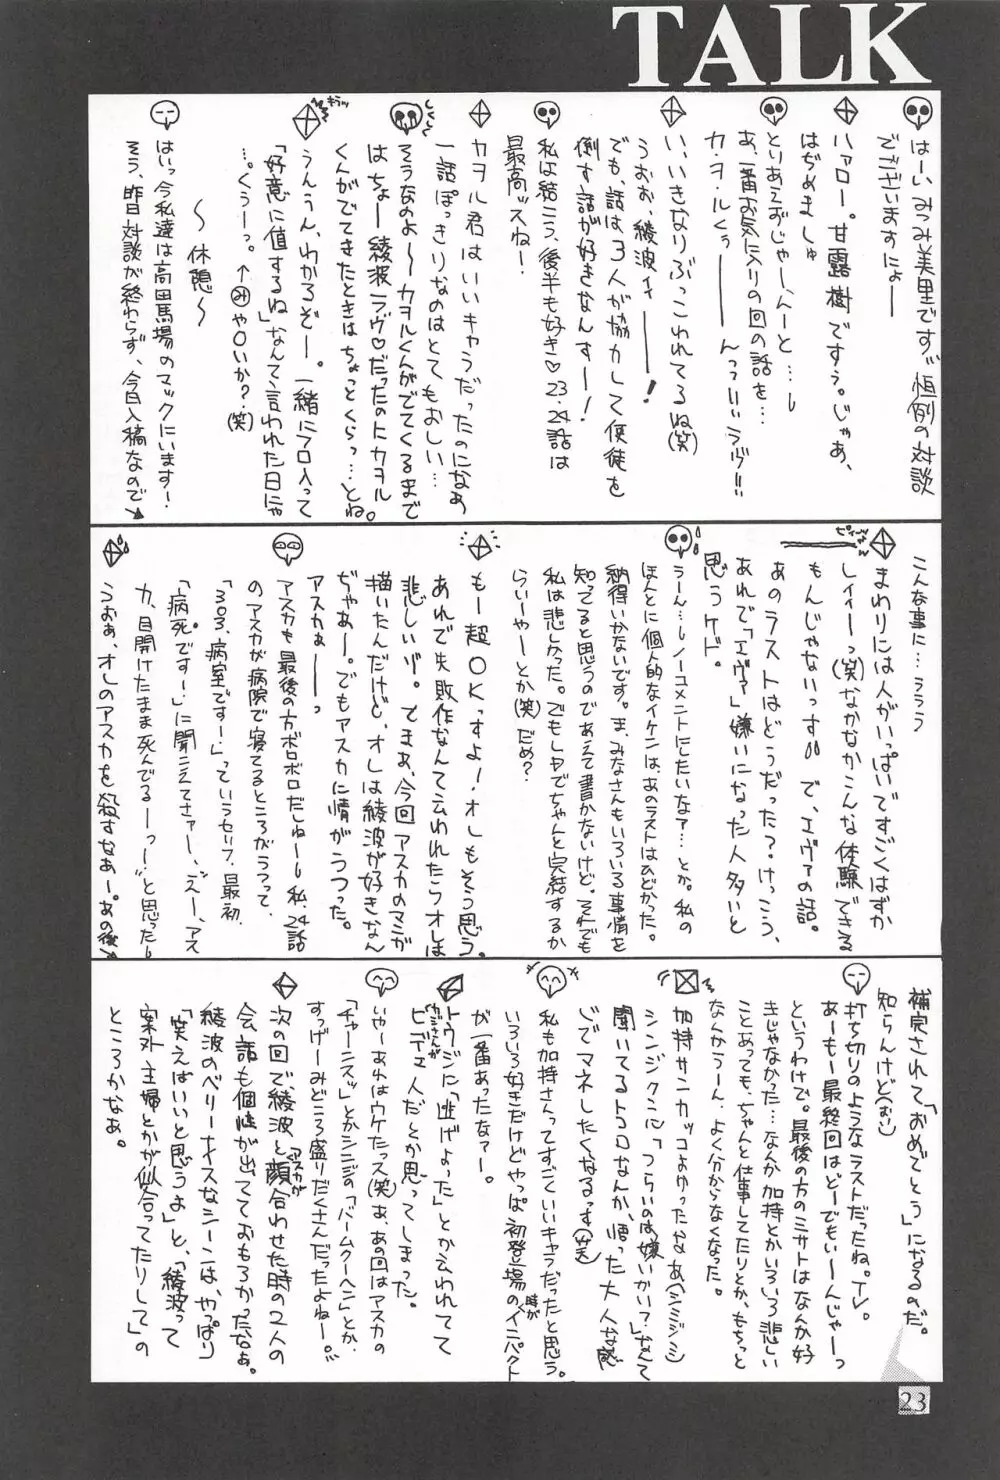 TALK
はーい、みつみ美里です。恒例の対談
でございますにょー
ハァロー。甘露樹ですぅ。じゃあ、
はぢめましゅ
とりあえずじゃーんーと…
あ、一番お気に入りの回の話を…
カ・ヲ・ルくぅーーんっっいぃラヴ!!!
い、いきなりぶっこわれてるね(笑)
うおぉ、綾波ィーーー!
でも、話は3人が協力して使徒を
倒す話が好きなんすー!
私は結こう、後半も好き♡23、24話は
最高ッスねー!
カヲル君はいいキャラだったのになぁ
一話ぽっきりなのはとてもおしい…
そうなのよ〜〜カヲルくんがでてくるまで
はちょー綾波ラヴ♡だったのにカヲル
くんがでてきたときはちょっとくらっ…とね。
うんうん、わかるぞー。一緒にフロ入って
「好意に値するね」なんて言われた日にゃ
…。くぅーっ。↑み や〇いか?(笑)
〜休憩〜
はいっ今私達は高田馬場のマックにいます!
そう、昨日対談が終わらず、今日入稿なので
こんな事に…ううう
まわりには人がいっぱいですごくはずか
しィィーっ(笑)なかなかこんな体験できる
もんじゃないっす で、エヴァの話。
あのラストはどうだった?けっこう、
あれで「エヴァ」嫌いになった人多いと
思うケド。
うーん…ノーコメントにしたいなァ…とか。私の
ほんとに個人的なイケンは、あのラストはひどかった。
納得いかないです。ま、みなさんもいろいろ事情を
知ってると思うのであえて書かないけど。それでも
私は悲しかった。でもLDでちゃんと完結するか
らいーやーとか(笑)だめ?
もー超OKっすよ!オレもそう思う。
あれで失敗作なんて云われたらオレは
悲しいゾ。でまぁ、今回アスカのマンガ
描いたんだけど、オレは綾波が好きなん
ぢゃあー。でもアスカに情がうつった。
アスカぁーーっ
アスカも最後の方ボロボロだしねーー私、24話
のアスカが病院で寝てるところがうつって、
「303、病室ですー」っていうセリフ、最初、
「病死ですー」に聞こえてさァー、ズー、アス
カ、目開けたまま死んでるーーっー!と思った
うおぉ、オレのアスカを殺すなぁー。あの後
補完されて「おめでとう」になるのだ。
知らんけど(おい)
打ち切りのようなラストだったね。TV。
あーもー最終回はどーでもいーんじゃーっ
というわけで。最後の方のミサトはなんか好
きじゃなかった…なんか加持とかいろいろ悲しい
ことあっても、ちゃんと仕事してたりとか、もちっと
なんかうーん、よく分からなくなった。
加持サンカッコよかったなぁ(シミジミ)
シンジクンに「つらいのは嫌いかい?」なんて
聞いてるトコロなんか、悟った大人な感
じでマネしたくなるっす(笑)
私も加持さんってすごくいいキャラだったと思う。
いろいろ好きだけどやっぱ初登場の時がインパクト
が一番あったなァー。
トウジに「逃げよった」とか云われてて
ヒデェ人だとか思ってしまった。
いやーあれはウケたっス(笑)あ、あの回はアスカの
「チャーンスッ」とかシンジの「バームクーヘン」とか、
すっげーみどころ盛りだくさんだったよねー。
次の回で、綾波とアスカが顔合わせた時の2人の
会話も個性が出てておもろかったなぁ。
綾波のベリーナイスなシーンは、やっぱり
「笑えばいいと思うよ」と、「綾波って
案外、主婦とかが似合ってたりして」の
ところかなぁ。
23